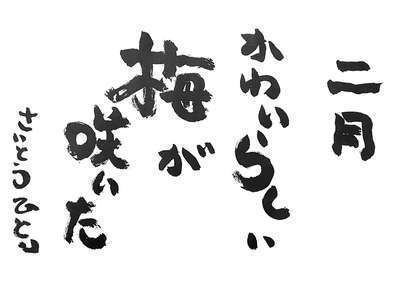 二月
かわいいらしい
梅が
咲いた
さいとうひとり